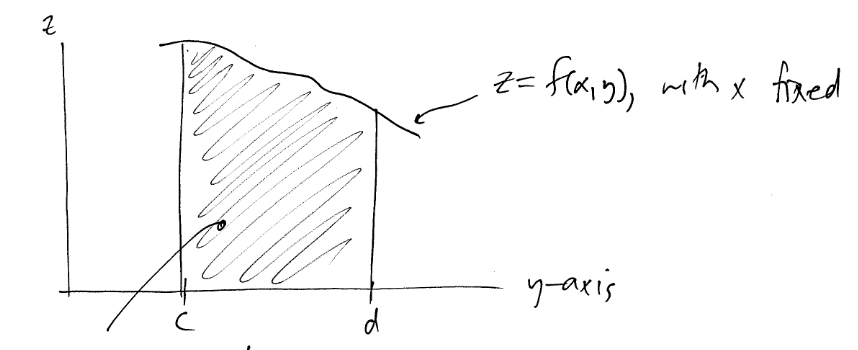 z
z = f(x,y), with x fixed
y-axis
c d